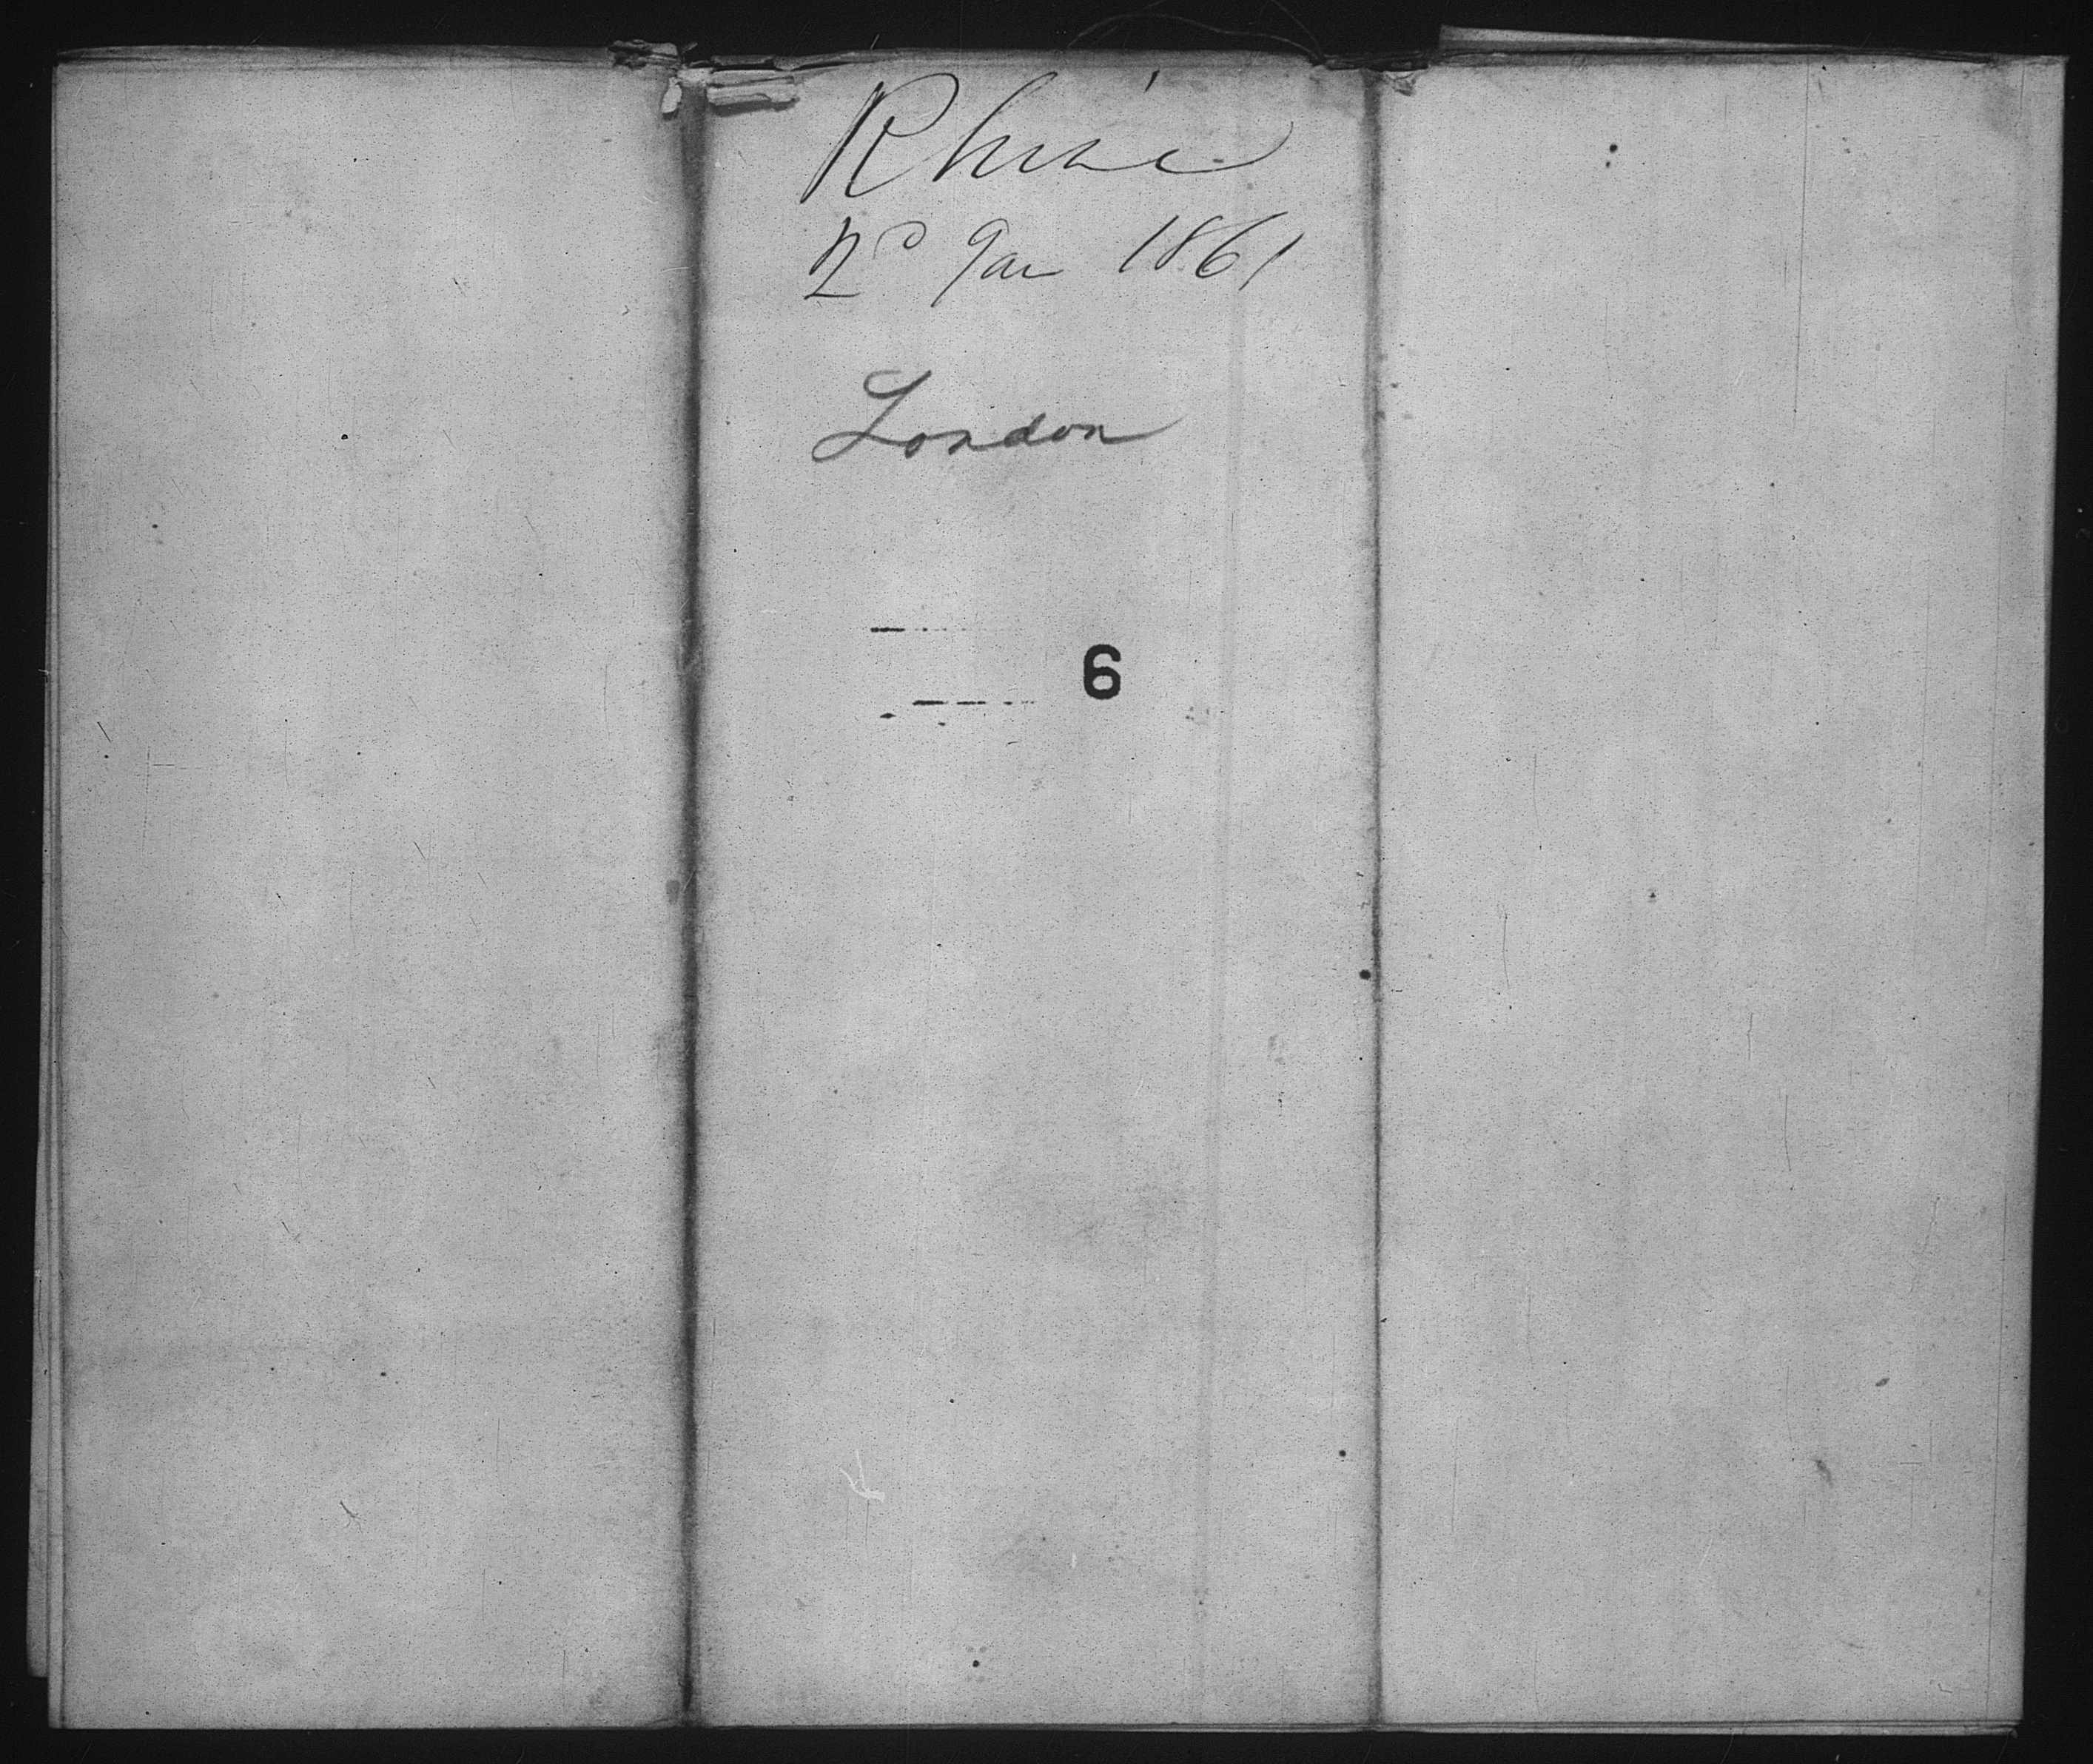 Rhine
2D Jan 1861
London
6